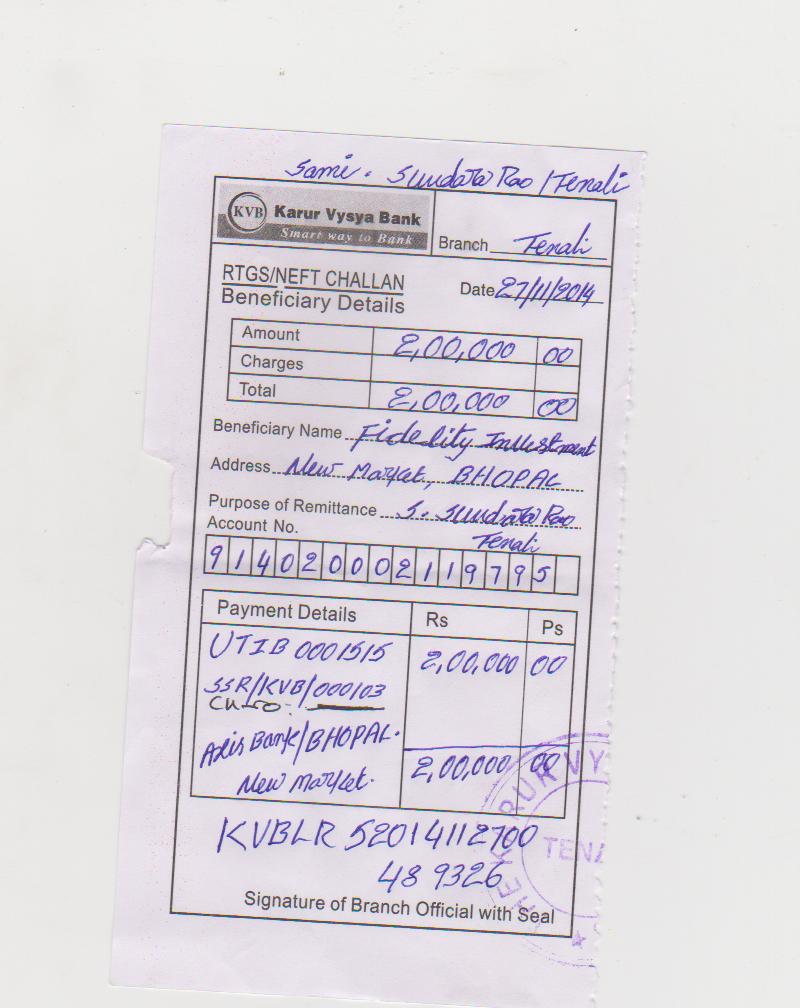 Sami. Sundara Rao / Tenali
KVB Karur Vysya Bank
Smart way to Bank
Branch Tenali
RTGS/NEFT CHALLAN
Date 27/11/2014
Beneficiary Details
Amount 2,00,000 00
Charges
Total 2,00,000 00
Beneficiary Name Fidelity Investment
Address New Market, BHOPAL
Purpose of Remittance S. Sundara Rao
Tenali
Account No.
914020002119795
Payment Details Rs Ps
UTIB 0001515 2,00,000 00
SSR/KVB/000103
Axis Bank/BHOPAL. 2,00,000 00
New Market.
KVBLR 52014112700
489326
Signature of Branch Official with Seal
KARUR VY
TENA